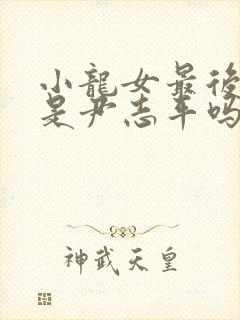 小龍女最後
是尹志平嗎
神武天皇